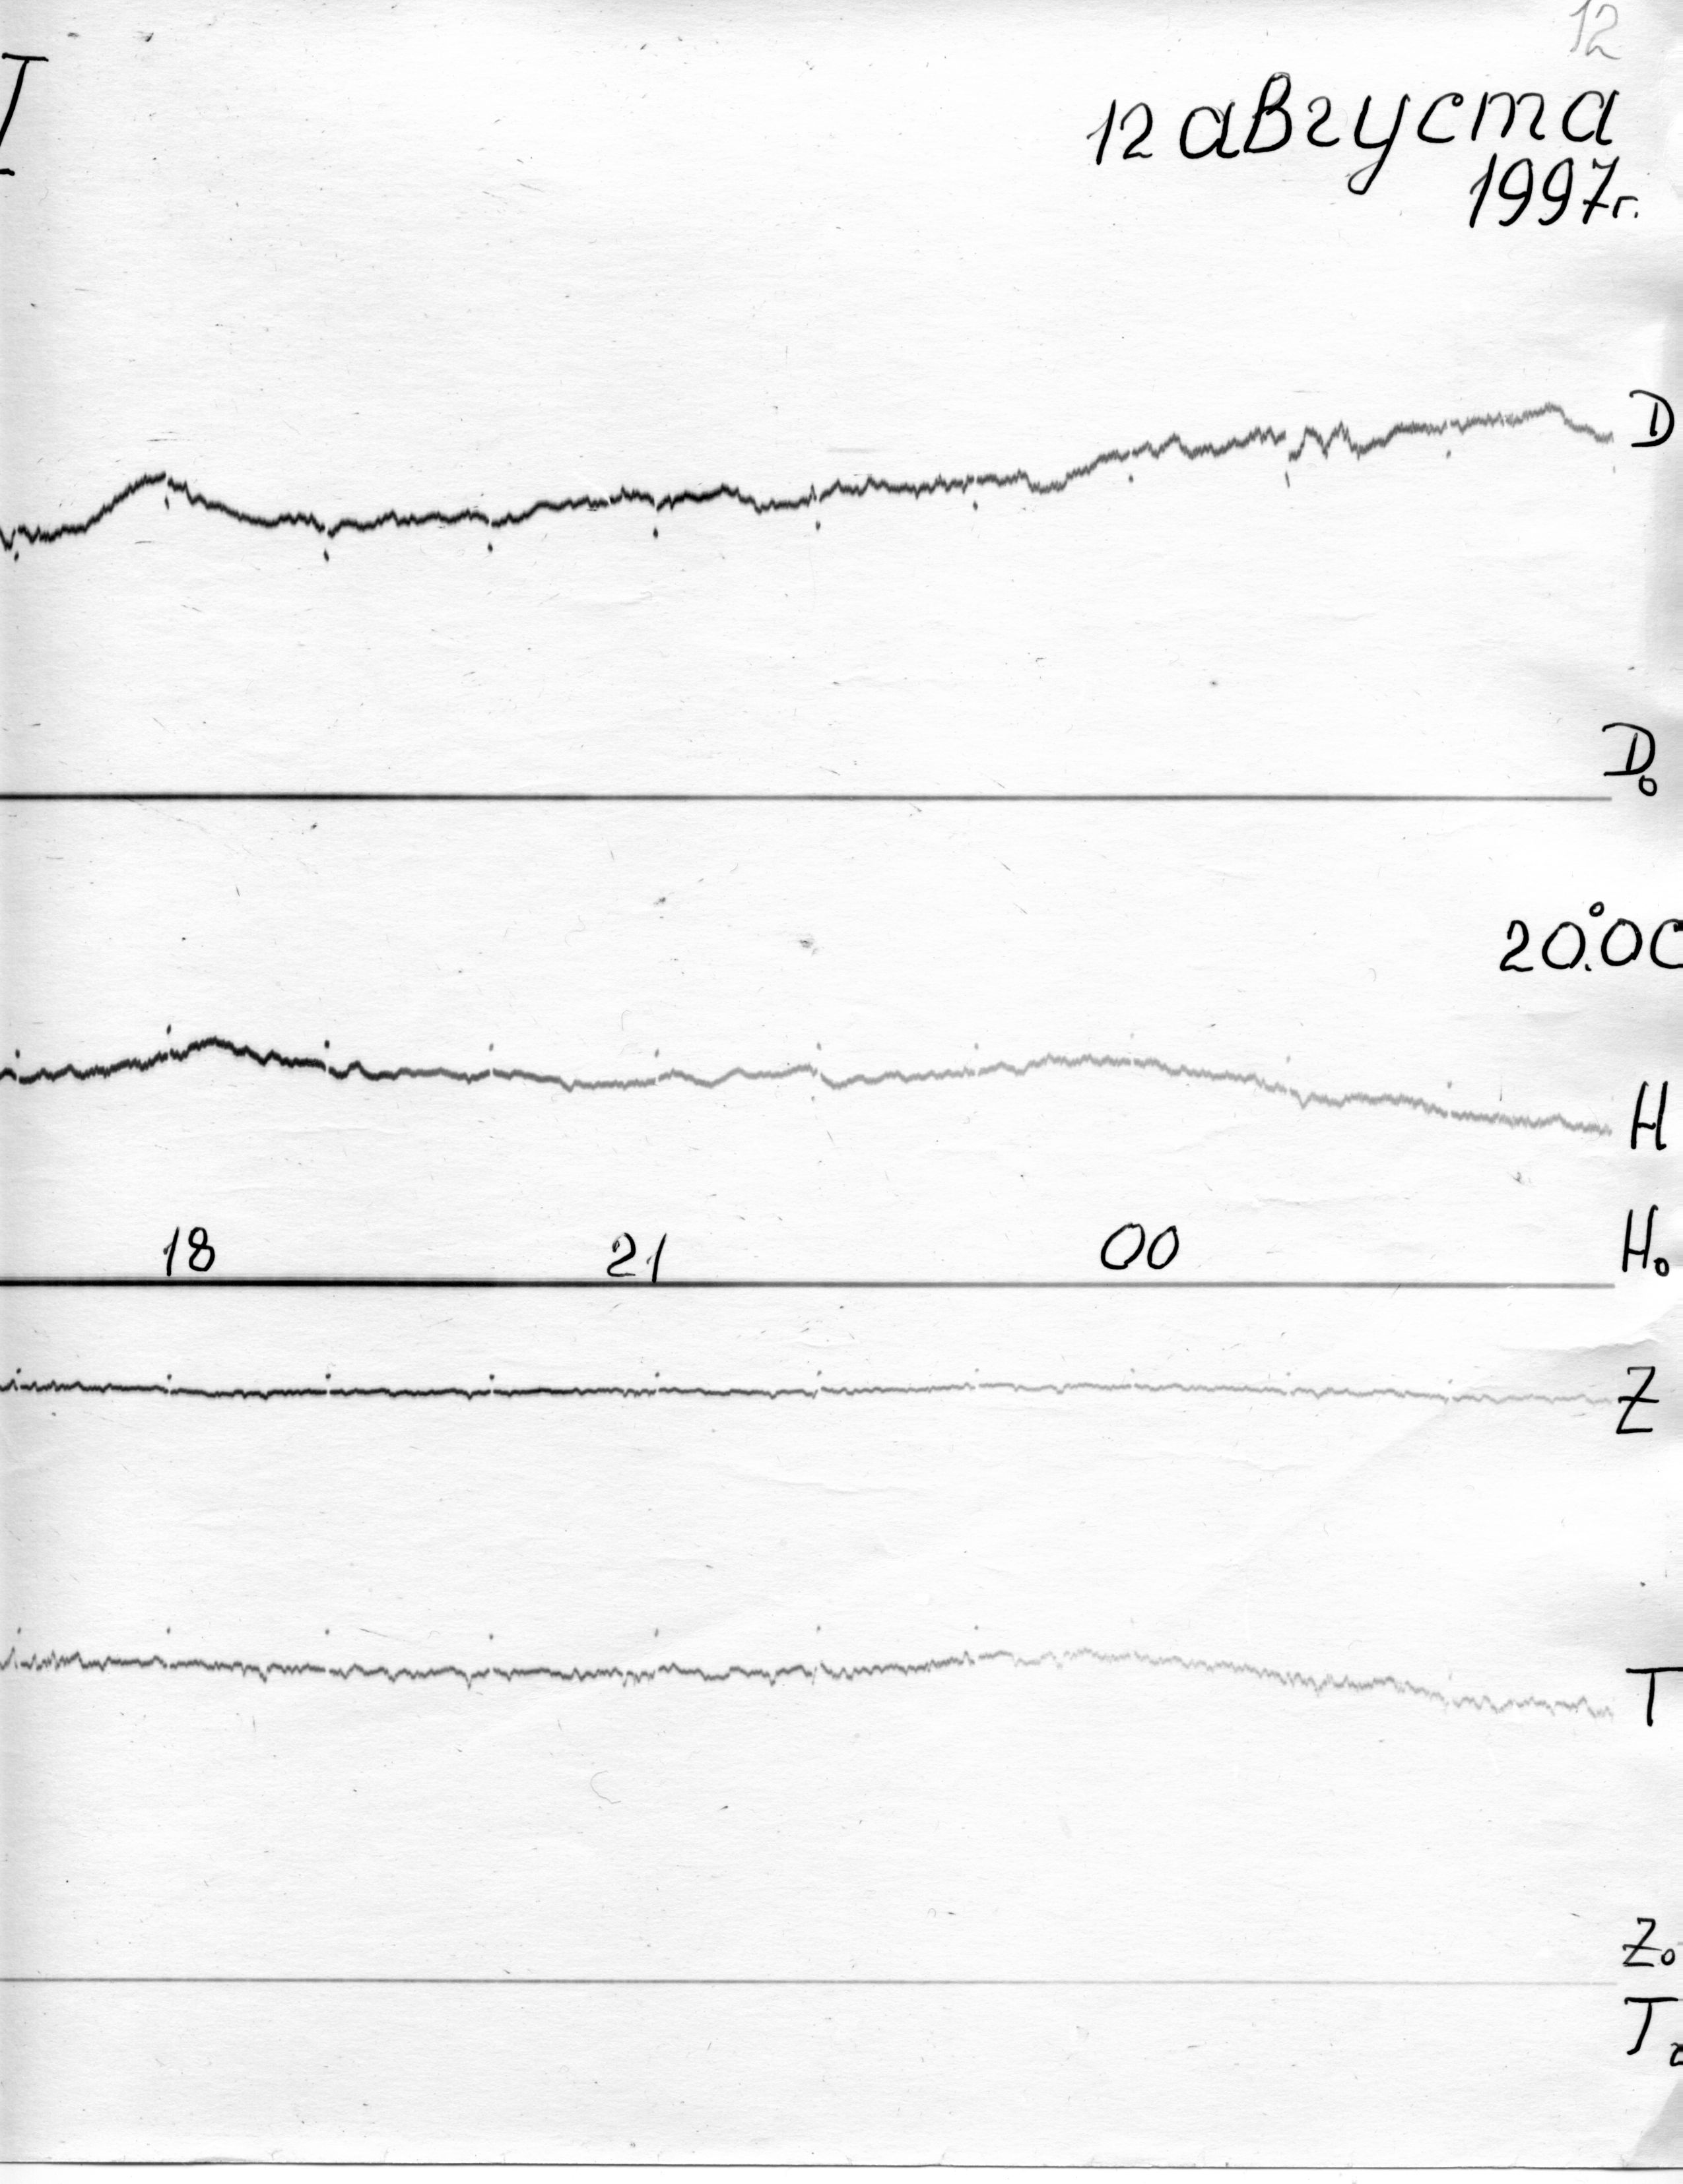 12
12 августа
1997г.
D
D₀
20.0°C
H
18 21 00
H₀
Z
T
Z₀